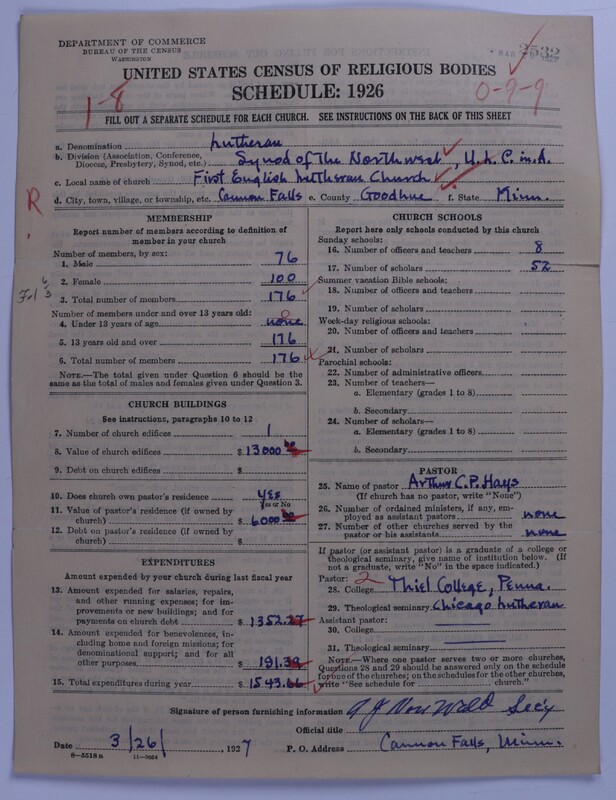 DEPARTMENT OF COMMERCE
BUREAU OF THE CENSUS
WASHINGTON
MAR 2532
UNITED STATES CENSUS OF RELIGIOUS BODIES
SCHEDULE: 1926
1-8
0-9-9
FILL OUT A SEPARATE SCHEDULE FOR EACH CHURCH. SEE INSTRUCTIONS ON THE BACK OF THIS SHEET
a. Denomination Lutheran
b. Division (Association, Conference, Diocese, Presbytery, Synod, etc.) Synod of the Northwest, U.L.C. in A.
c. Local name of church First English Lutheran Church
d. City, town, village, or township, etc. Cannon Falls e. County Goodhue f. State Minn.
R
MEMBERSHIP
Report number of members according to definition of
member in your church
Number of members, by sex:
1. Male 76
2. Female 100
3. Total number of members 176
Number of members under and over 13 years old:
4. Under 13 years of age none
5. 13 years old and over 176
6. Total number of members 176
NOTE.—The total given under Question 6 should be
same as the total of males and females given under Question 3.
CHURCH BUILDINGS
See instructions, paragraphs 10 to 12
7. Number of church edifices 1
8. Value of church edifices $ 13000 00
9. Debt on church edifices $
10. Does church own pastor's residence yes
Yes or No
11. Value of pastor's residence (if owned by
church) $ 6000 00
12. Debt on pastor's residence (if owned by
church) $
EXPENDITURES
Amount expended by your church during last fiscal year
13. Amount expended for salaries, repairs,
and other running expenses; for im-
provements or new buildings; and for
payments on church debt $ 1352.27
14. Amount expended for benevolences, in-
cluding home and foreign missions; for
denominational support; and for all
other purposes 191.39
15. Total expenditures during year $ 1543.66
CHURCH SCHOOLS
Report here only schools conducted by this church
Sunday schools:
16. Number of officers and teachers 8
17. Number of scholars 52
Summer vacation Bible schools:
18. Number of officers and teachers
19. Number of scholars
Week-day religious schools:
20. Number of officers and teachers
21. Number of scholars
Parochial schools:
22. Number of administrative officers
23. Number of teachers—
a. Elementary (grades 1 to 8)
b. Secondary
24. Number of scholars—
a. Elementary (grades 1 to 8)
b. Secondary
PASTOR
25. Name of pastor Arthur C.P. Hays
(If church has no pastor, write "None")
26. Number of ordained ministers, if any, em-
ployed as assistant pastors none
27. Number of other churches served by the
pastor or his assistants none
If pastor (or assistant pastor) is a graduate of a college or
theological seminary, give name of institution below. (If
not a graduate, write "No" in the space indicated.)
Pastor: 2
28. College Thiel College, Penna.
29. Theological seminary Chicago Lutheran
Assistant pastor:
30. College
31. Theological seminary
NOTE.—Where one pastor serves two or more churches,
Questions 28 and 29 should be answered only on the schedule
for one of the churches; on the schedules for the other churches,
write "See schedule for church."
Signature of person furnishing information Sec'y
Official title
Date 3/26/, 1927 P. O. Address Cannon Falls, Minn.
8—5518a 11—9034